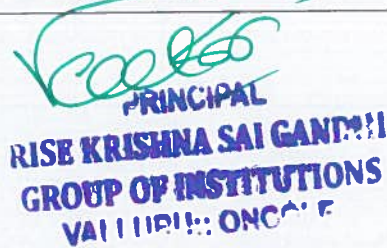 PRINCIPAL
RISE KRISHNA SAI GANDHI
GROUP OF INSTITUTIONS
VALLURU, ONGOLE